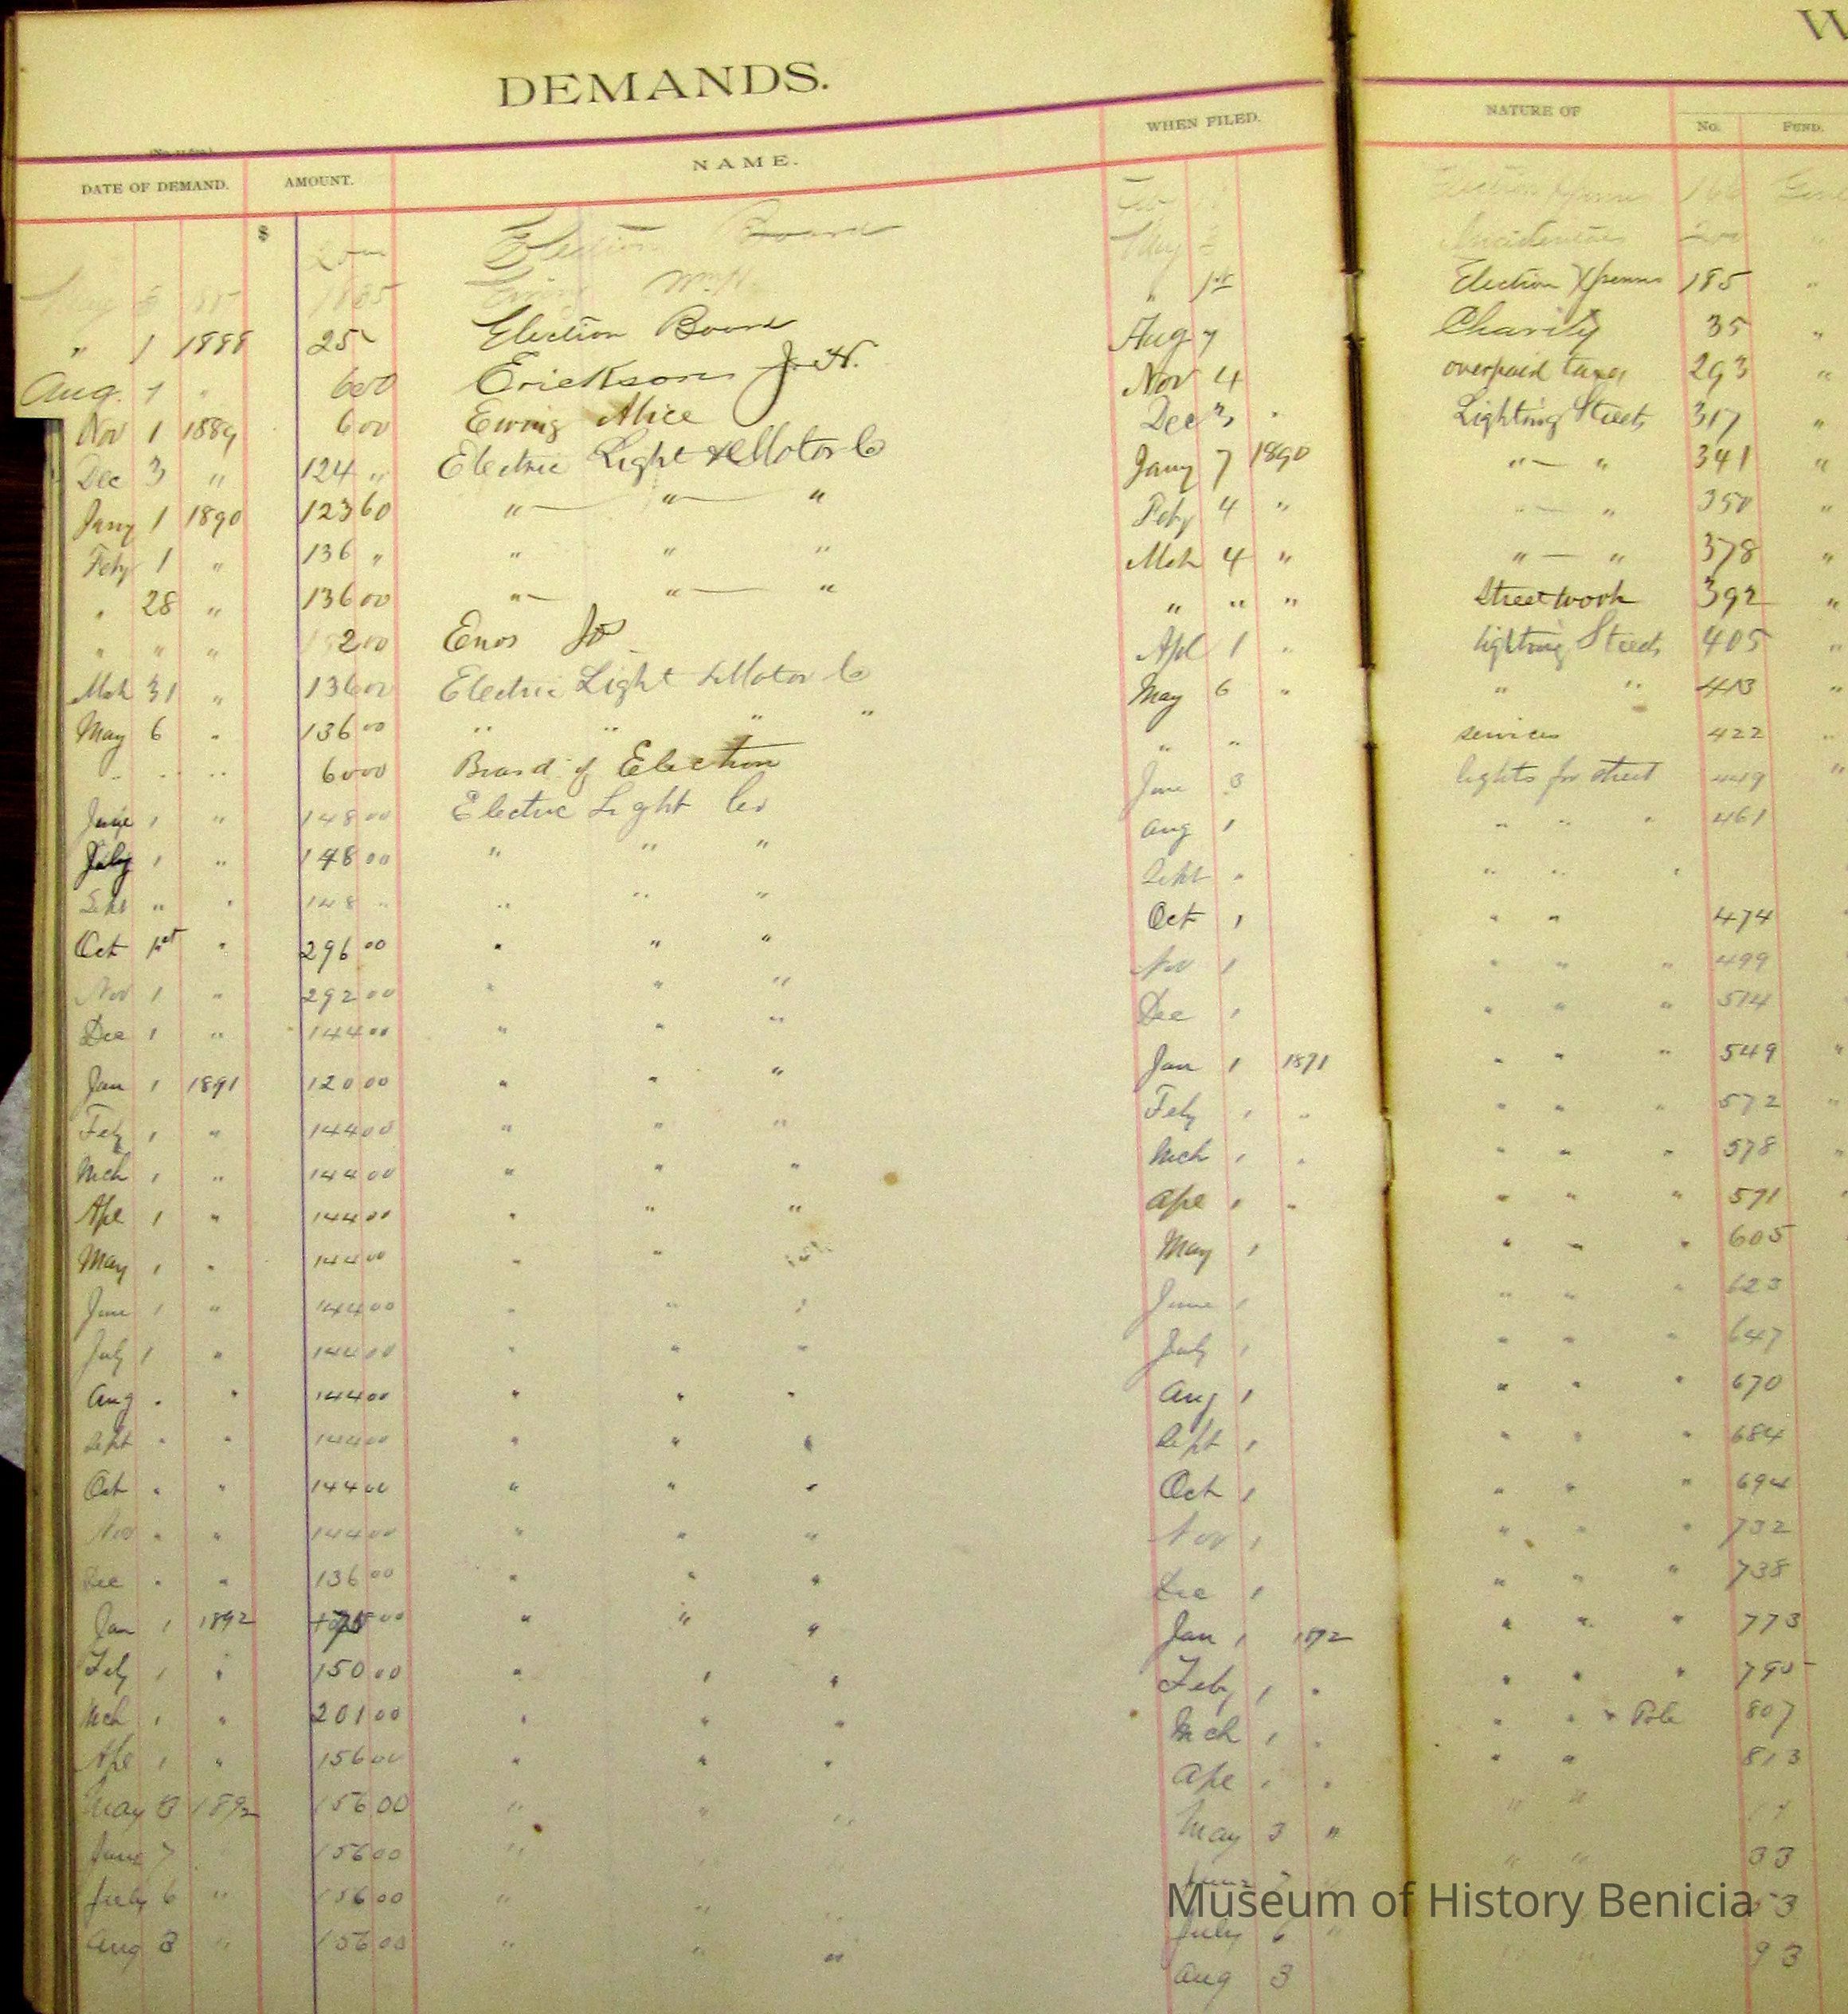 DEMANDS.
W
DATE OF DEMAND. AMOUNT. NAME. WHEN FILED. NATURE OF No. FUND.
$ Election Board
May
" 1 1888 25 Election Board " 1st Election Xpenses 185 "
Aug. 7 " 600 Erickson J. H. Aug 7 Charity 35 "
Nov 1 1889 600 Ewing Alice Nov 4 overpaid taxes 293 "
Dec 3 " 124 " Electric Light & Motor Co Dec 3 " Lighting Streets 317 "
Jany 1 1890 123 60 " " " Jany 7 1890 " " 341 "
Feby 1 " 136 " " " " Feby 4 " " " 350 "
" 28 " 136 00 " " " Mch 4 " " " 378 "
" " " 2 00 Enos Jos " " " Street work 392 "
Mch 31 " 136 00 Electric Light & Motor Co Apl 1 " lighting Streets 405 "
May 6 " 136 00 " " " " May 6 " " " 413 "
" " " 60 00 Board of Election " " services 422 "
June 1 " 148 00 Electric Light Co June 3 lights for street 449 "
July 1 " 148 00 " " " Aug 1 " " " 461
Sept " " 148 " " " " Sept " " " "
Oct 1st " 296 00 " " " Oct 1 " " 474
Nov 1 " 292 00 " " " Nov 1 " " " 499
Dec 1 " 144 00 " " " Dec 1 " " " 514
Jan 1 1891 120 00 " " " Jan 1 1891 " " " 549 "
Feby 1 " 144 00 " " " Feby 1 " " " " 572 "
Mch 1 " 144 00 " " " Mch 1 " " " " 578 "
Ape 1 " 144 00 " " " Ape 1 " " " " 591 "
May 1 " 144 00 " " May 1 " " " 605
June 1 " 144 00 " " " June 1 " " " 623
July 1 " 144 00 " " " July 1 " " " 647
Aug " " 144 00 " " " Aug 1 " " " 670
Sept " " 144 00 " " " Sept 1 " " " 684
Oct " " 144 00 " " " Oct 1 " " " 694
Nov " " 144 00 " " " Nov 1 " " " 732
Dec " " 136 00 " " " Dec 1 " " " 738
Jan 1 1892 00 " " " Jan 1 1892 " " " 773
Feby 1 " 150 00 " " " Feby 1 " " " " 790
Mch 1 " 201 00 " " " Mch 1 " " " " Pole 807
Ape 1 " 156 00 " " " Ape 1 " " " 813
May 3 1892 156 00 " " " May 3 " " " 17
June 7 156 00 " June " " 33
July 6 " 156 00 " " " July 6 " 53
Aug 3 " 156 00 " " " Aug 3 " " 93
Museum of History Benicia